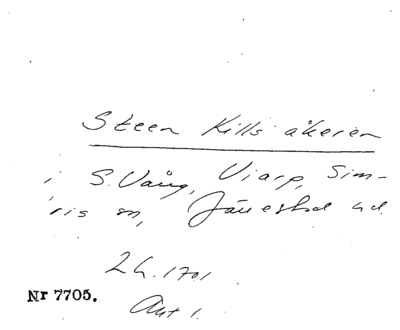 Steen Kills åkeren
i S. Vång, Viarp, Sim-
ris sn, Järrestad hd.
LH. 1701
Nr 7705.
Akt 1.